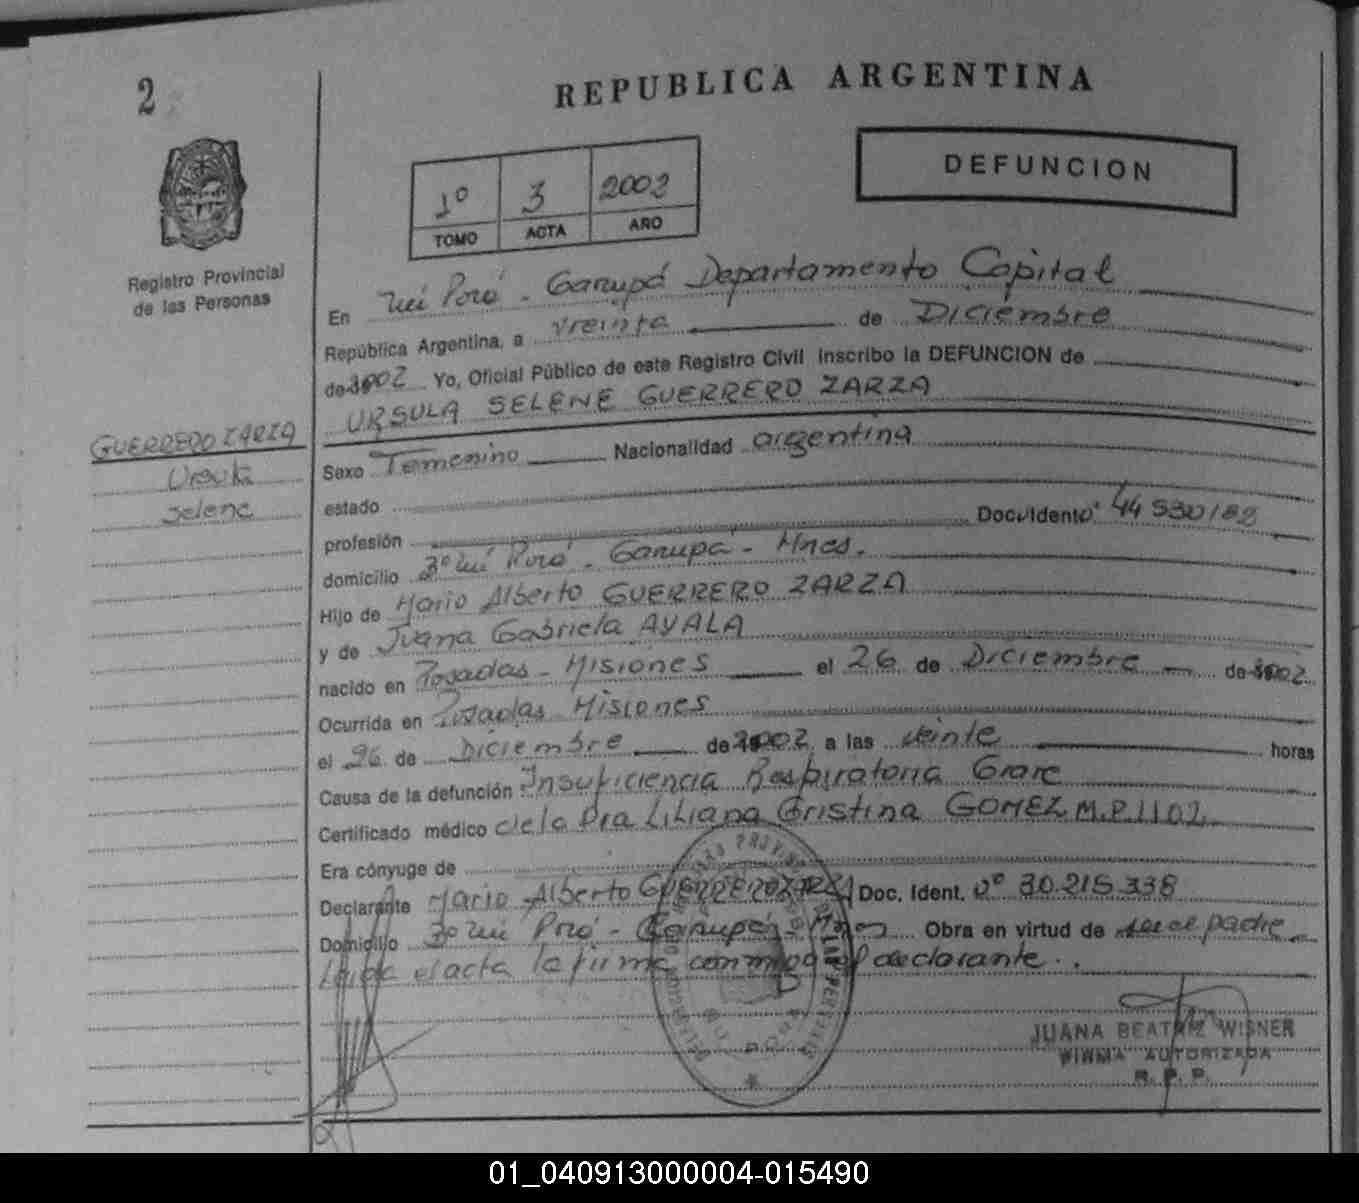 2
REPUBLICA ARGENTINA
DEFUNCION
1º 3 2002
TOMO ACTA AÑO
Registro Provincial
de las Personas
En Ñú Porá - Garupá Departamento Capital
República Argentina, a treinta de Diciembre
de 2002 Yo, Oficial Público de este Registro Civil inscribo la DEFUNCION de
URSULA SELENE GUERRERO ZARZA
GUERRERO ZARZA
Ursula
Selene
Sexo Femenino Nacionalidad argentina
estado
profesión Doc. Ident. Nº 44530182
domicilio 3º Ñú Porá - Garupá - Mnes.
Hijo de Mario Alberto GUERRERO ZARZA
y de Juana Gabriela AYALA
nacido en Posadas - Misiones el 26 de Diciembre de 2002
Ocurrida en Posadas Misiones
el 26 de Diciembre de 2002 a las veinte horas
Causa de la defunción Insuficiencia Respiratoria Grave
Certificado médico de la Dra Liliana Cristina GOMEZ M.P.1102
Era cónyuge de
Declarante Mario Alberto GUERRERO ZARZA Doc. Ident. Nº 30.215.338
Domicilio 3º Ñú Porá - Garupá Mnes Obra en virtud de ser el padre
Leida el acta la firma conmigo el declarante.
JUANA BEATRIZ WISNER
FIRMA AUTORIZADA
R. P. P.
01_040913000004-015490